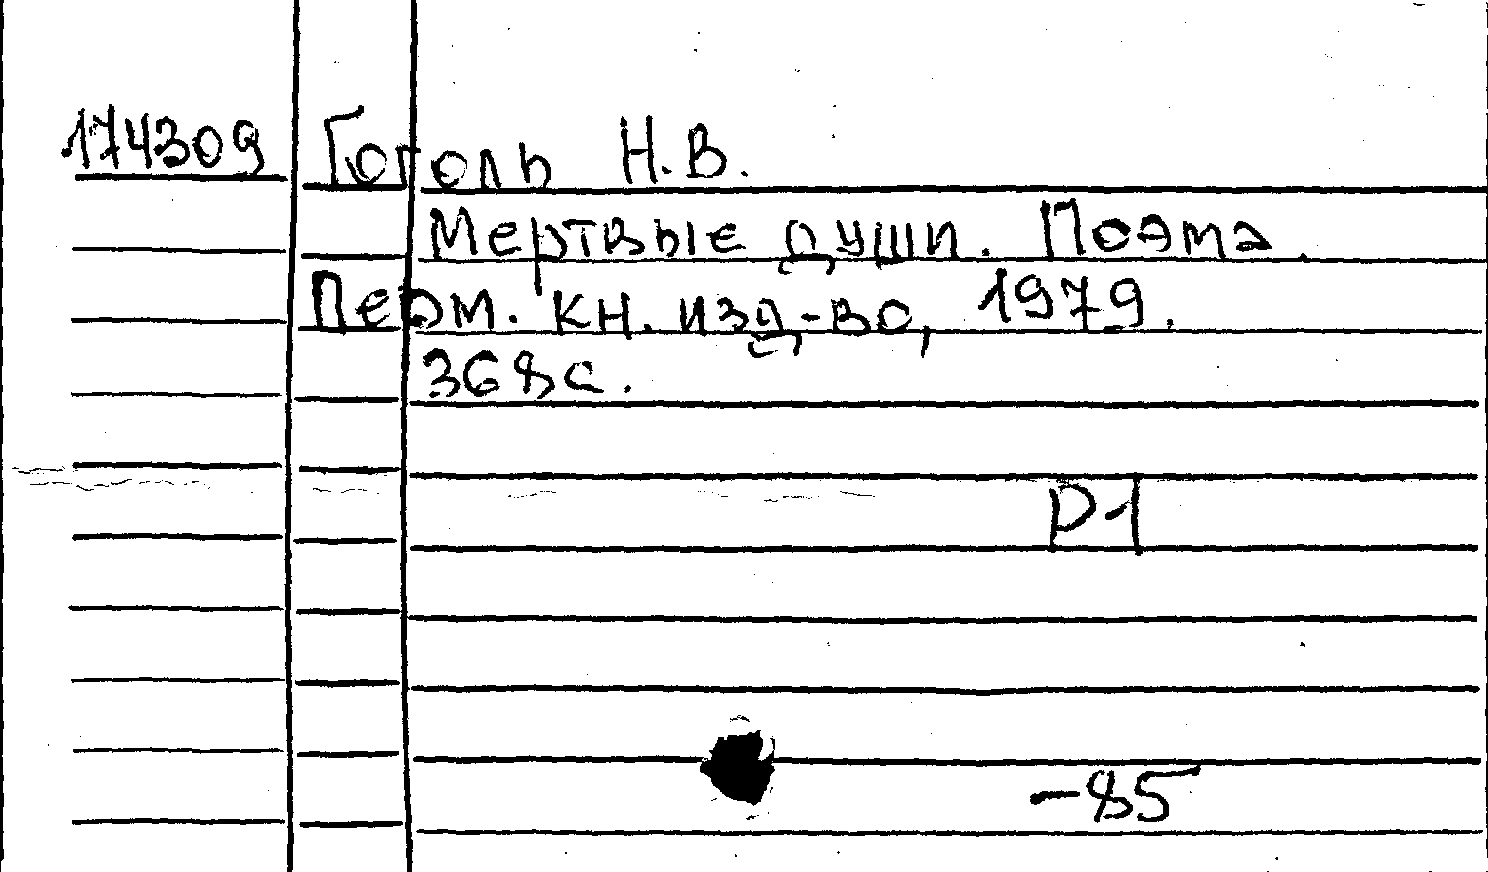 174309 Гоголь Н.В.
Мертвые души. Поэма.
Перм. кн. изд-во, 1979.
368с.
Р-1
-85